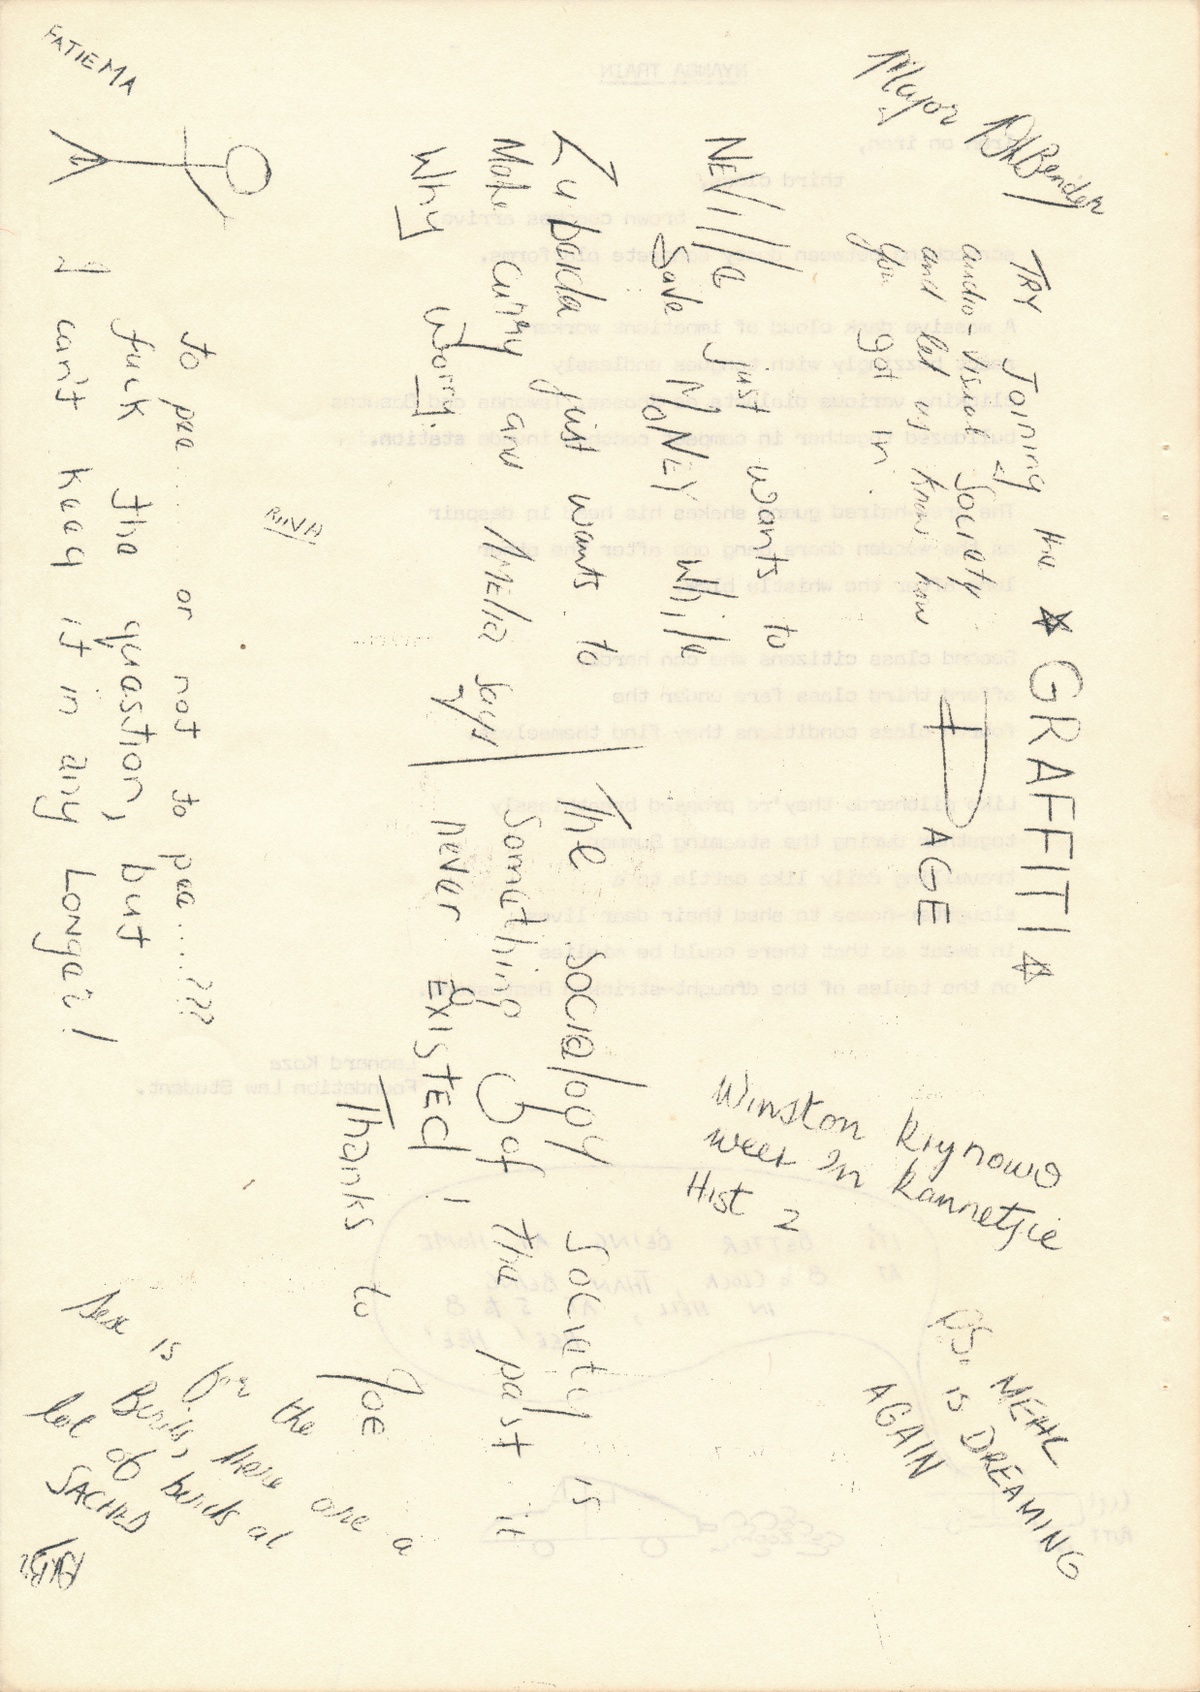 ☆ GRAFFITI ☆
PAGE
Major DHBender
TRY Joining the
audio-Visual Society
and let us know how
you got in.
NEVille Just wants to
Save MONEY while
Zubeida just wants to
Make curry and Mellie says
Why Worry.
The Socialogy Society is
Something Of the past it
never EXISTED!
Thanks to Joe
Winston krynowo
weer In kannetjie
Hist 2
P.S. MEHL
is DREAMING
AGAIN
FATIEMA
RUNA
to pee..... or not to pee....???
fuck the question, but
I can't keep it in any Longer!
Sex is for the
Birds, there are a
lot of birds at
SACHED
NYANGA TRAIN
Iron on iron,
third class/
brown coaches arrive
A massive dusk cloud of impatient workers
bulldozed together in compact coaches inside station.
The grey-haired guard shakes his head in despair
as the wooden doors bang one after the other
long after the whistle blew
Second class citizens who can hardly
afford third class fare under the
fourth class conditions they find themselves
Like pilchards they're pressed breathlessly
together during the steaming Summer
travelling daily like cattle to a
slaughter-house to shed their dear lives
in sweat so that there could be
on the tables of the drought-stricken
Leonard Koza
Foundation Law Student.
ITS BETTER BEING AT HOME
AT 8 o'CLOCK, THAN BEING
IN HELL, AT 5 to 8
HEE! HEE!